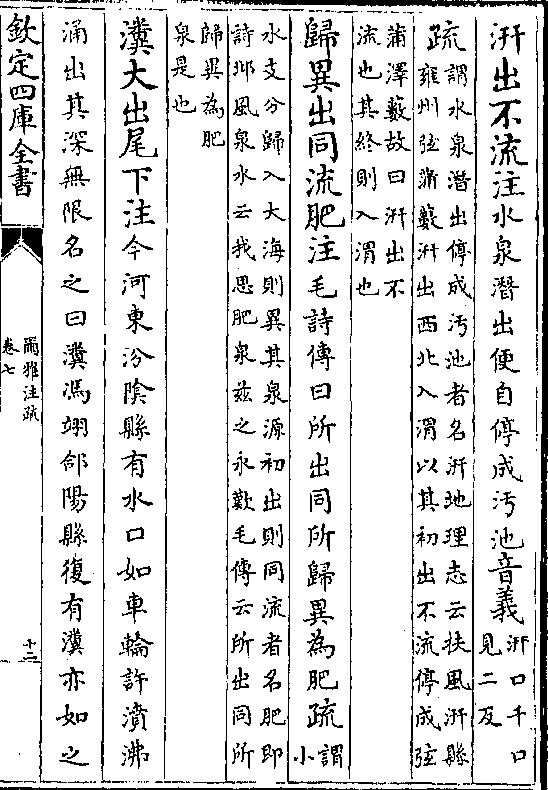 汧出不流注水泉潛出便自停成汚池音義汧口千口
見二反
疏謂水泉潛出停成汚池者名汧地理志云扶風汧縣
雍州弦蒲藪汧出西北入渭以其初出不流停成弦
蒲澤藪故曰汧出不
流也其終則入渭也
歸異出同流肥注毛詩傳曰所出同所歸異為肥疏謂
小
水支分歸入大海則異其泉源初出則同流者名肥即
詩邶風泉水云我思肥泉茲之永歎毛傳云所出同所
歸異為肥
泉是也
瀵大出尾下注今河東汾陰縣有水口如車輪許濆沸
涌出其深無限名之曰瀵馮翊郃陽縣復有瀵亦如之
欽定四庫全書
爾雅注疏
卷七
十二